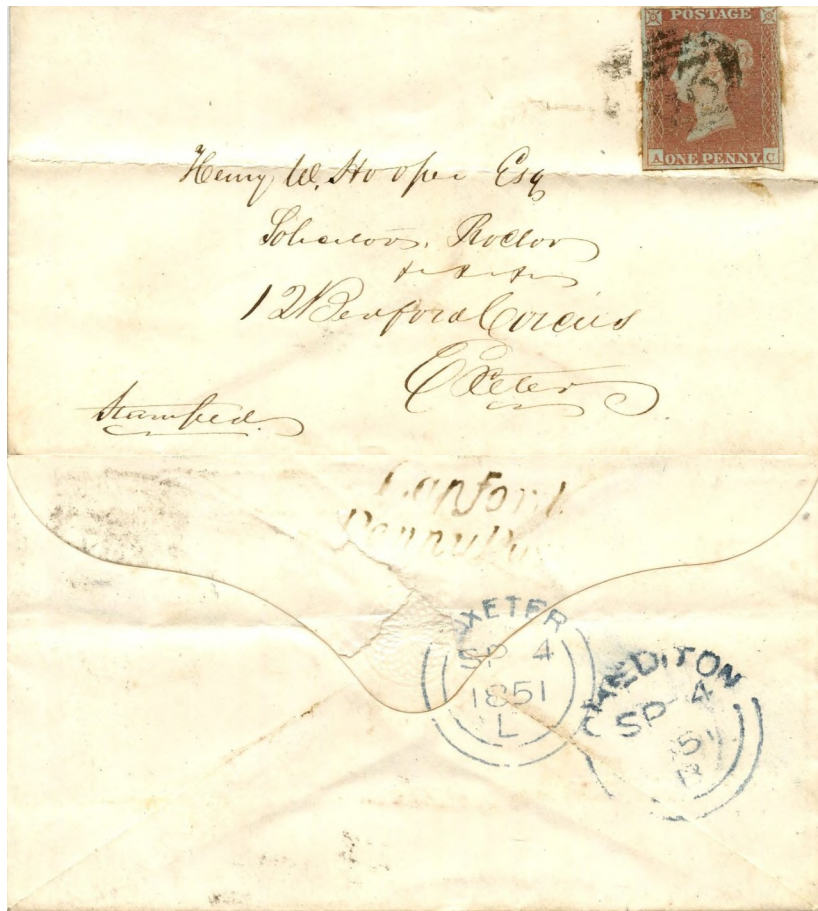 POSTAGE
A ONE PENNY C
Henry W. Hooper Esq
Solicitor, Proctor
12 Bedford Circus
Exeter
Stamped.
Lapford
Penny Po
EXETER
SP 4
1851
L
CREDITON
SP 4
1851